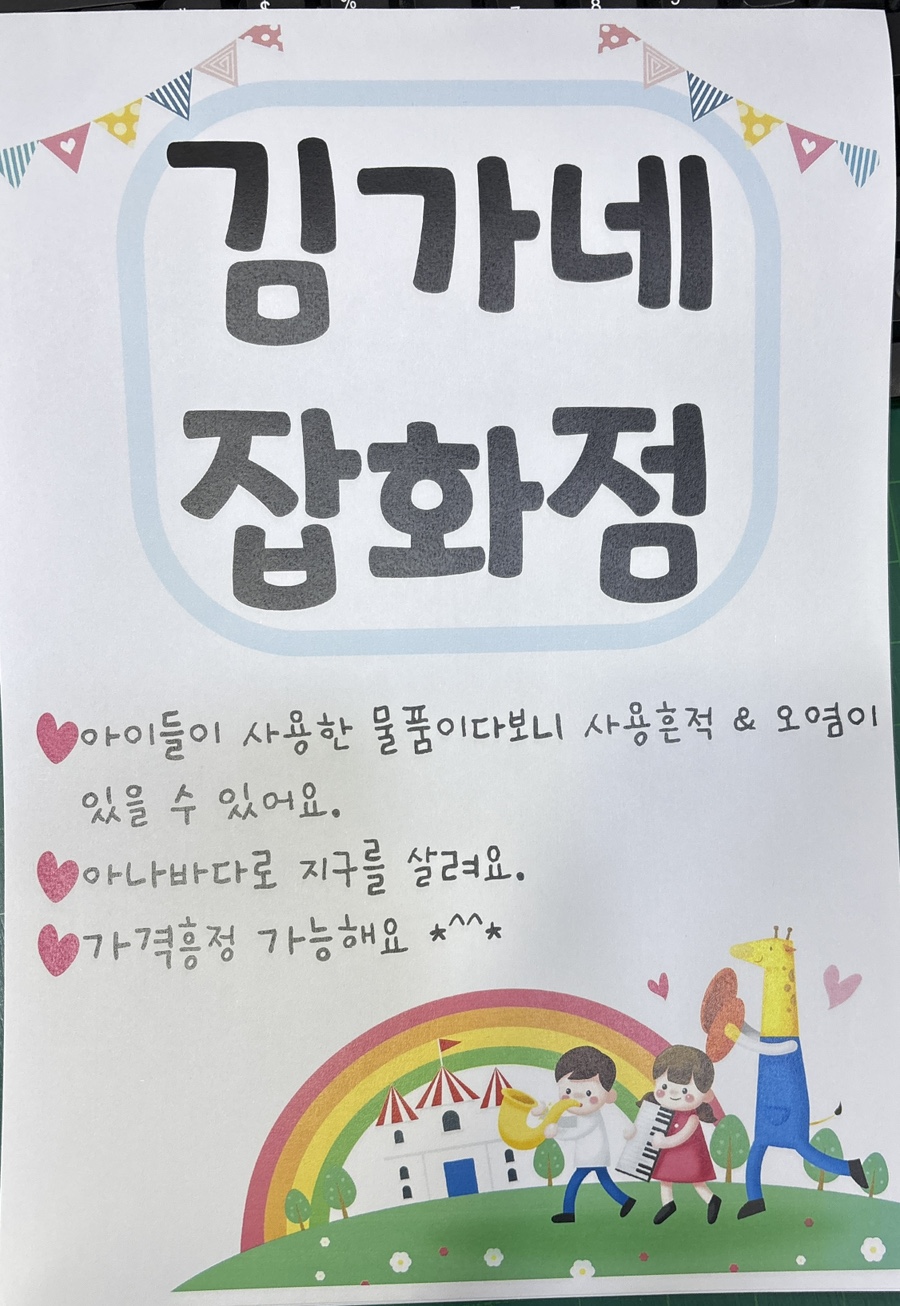 김가네
잡화점
아이들이 사용한 물품이다보니 사용흔적 & 오염이
있을 수 있어요.
아나바다로 지구를 살려요.
가격흥정 가능해요 *^^*